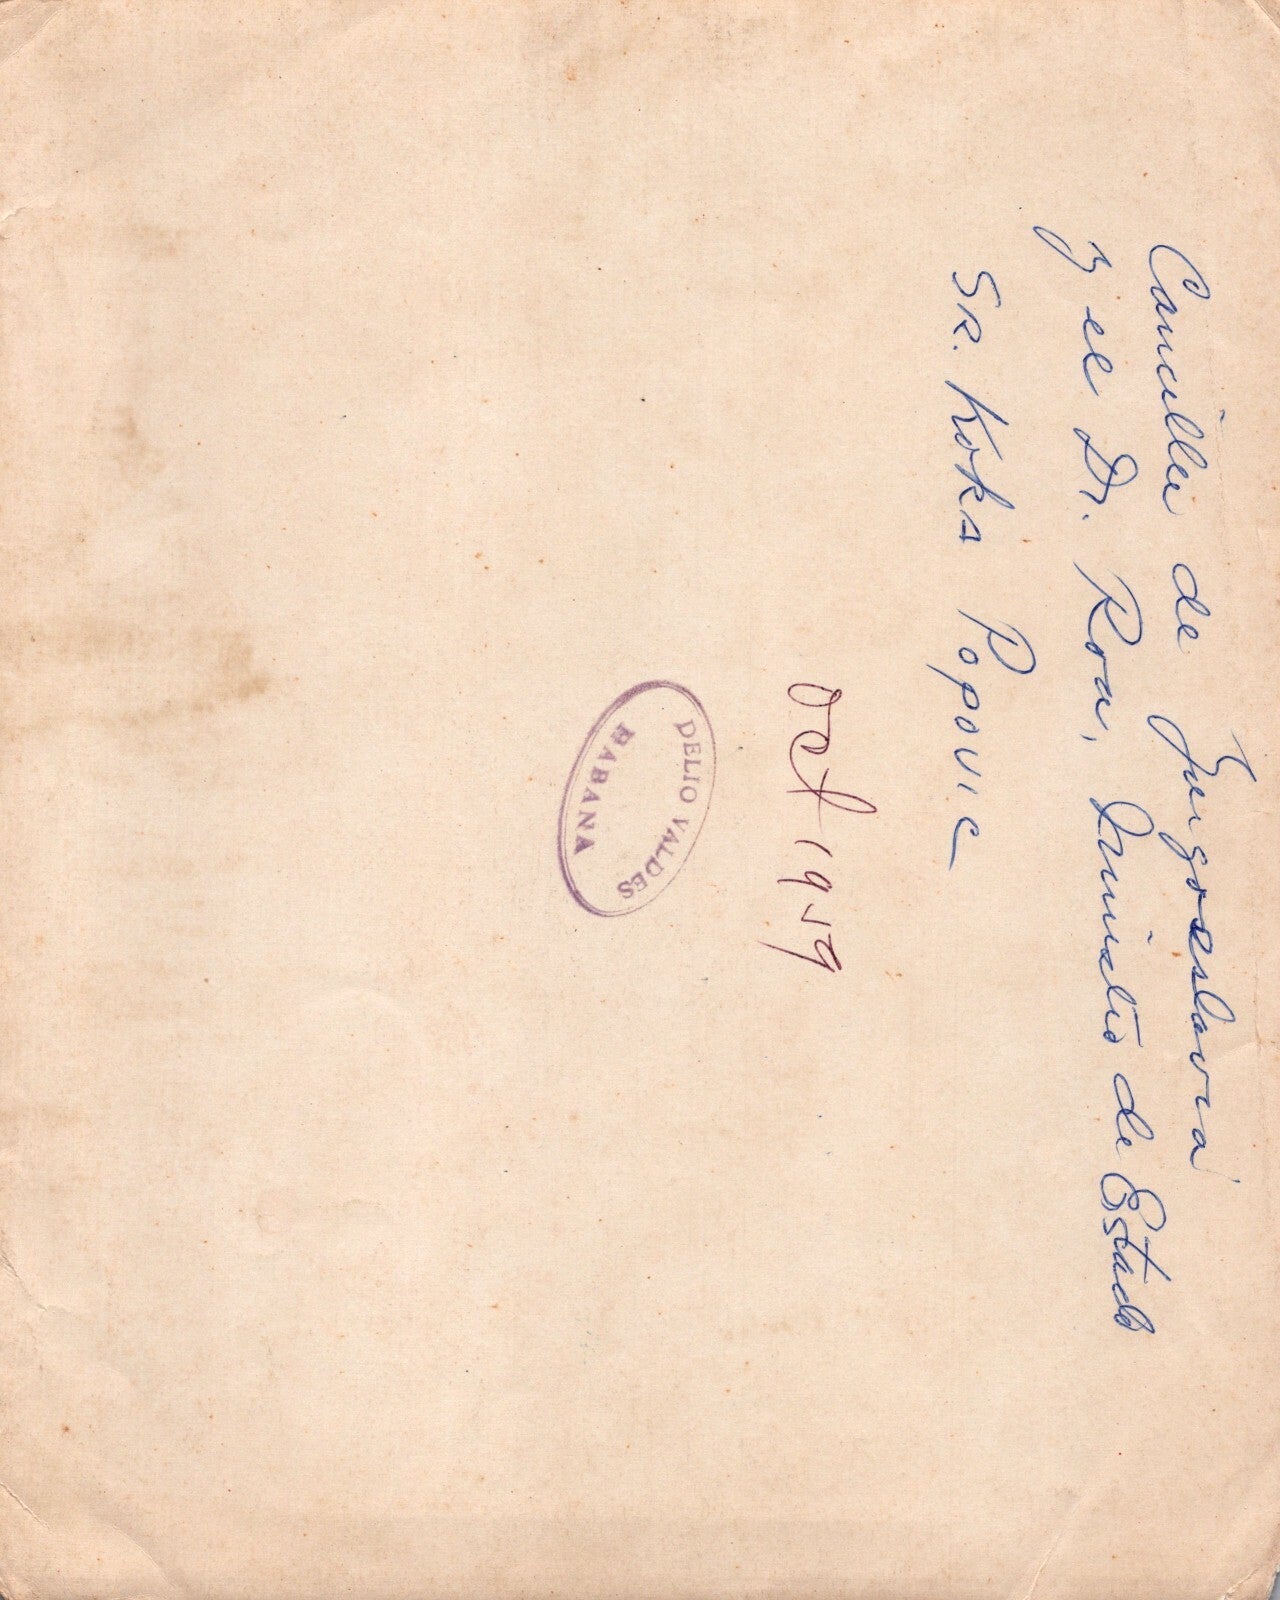 Canciller de Yugoeslavia
y el Dr. Roa, Ministro de Estado
SR. Koka Popovic
Oct 1959
DELIO VALDES
HABANA